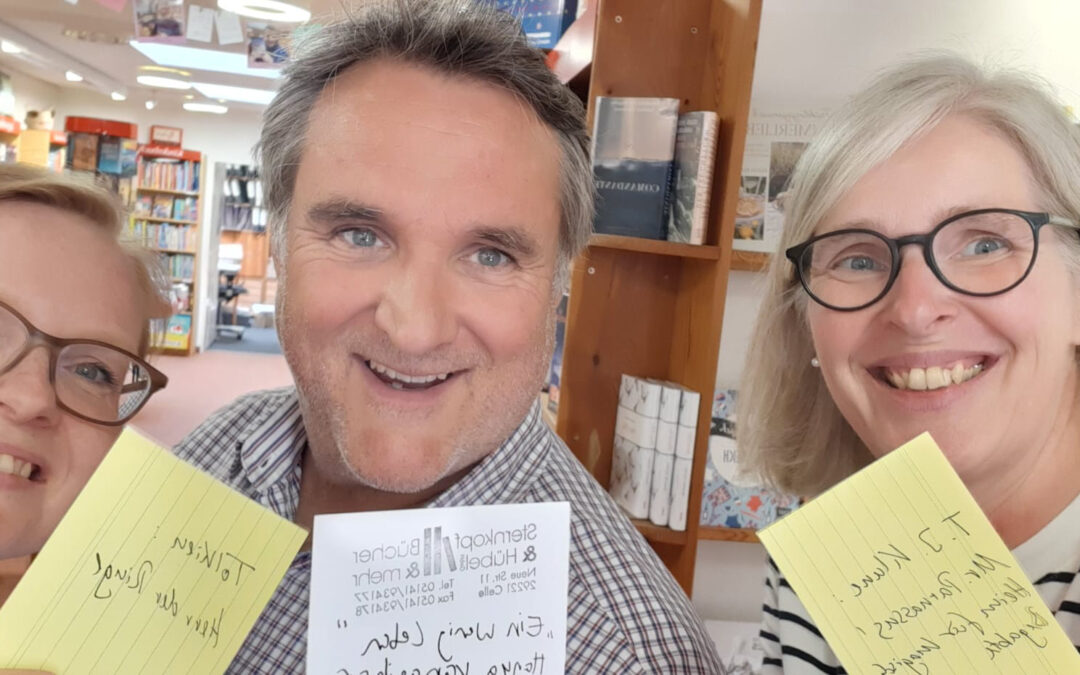 Tolkien:
Herr der Ringe
Sternkopf
& Hübel
Bücher
& mehr
Neue Str. 11
29221 Celle
Tel. 05141/934177
Fax 05141/934178
"Ein wenig Leben"
Hanya
T. J. Klune:
Mr. Parnassus'
Heim für magisch
Begabte
COMANDANTE